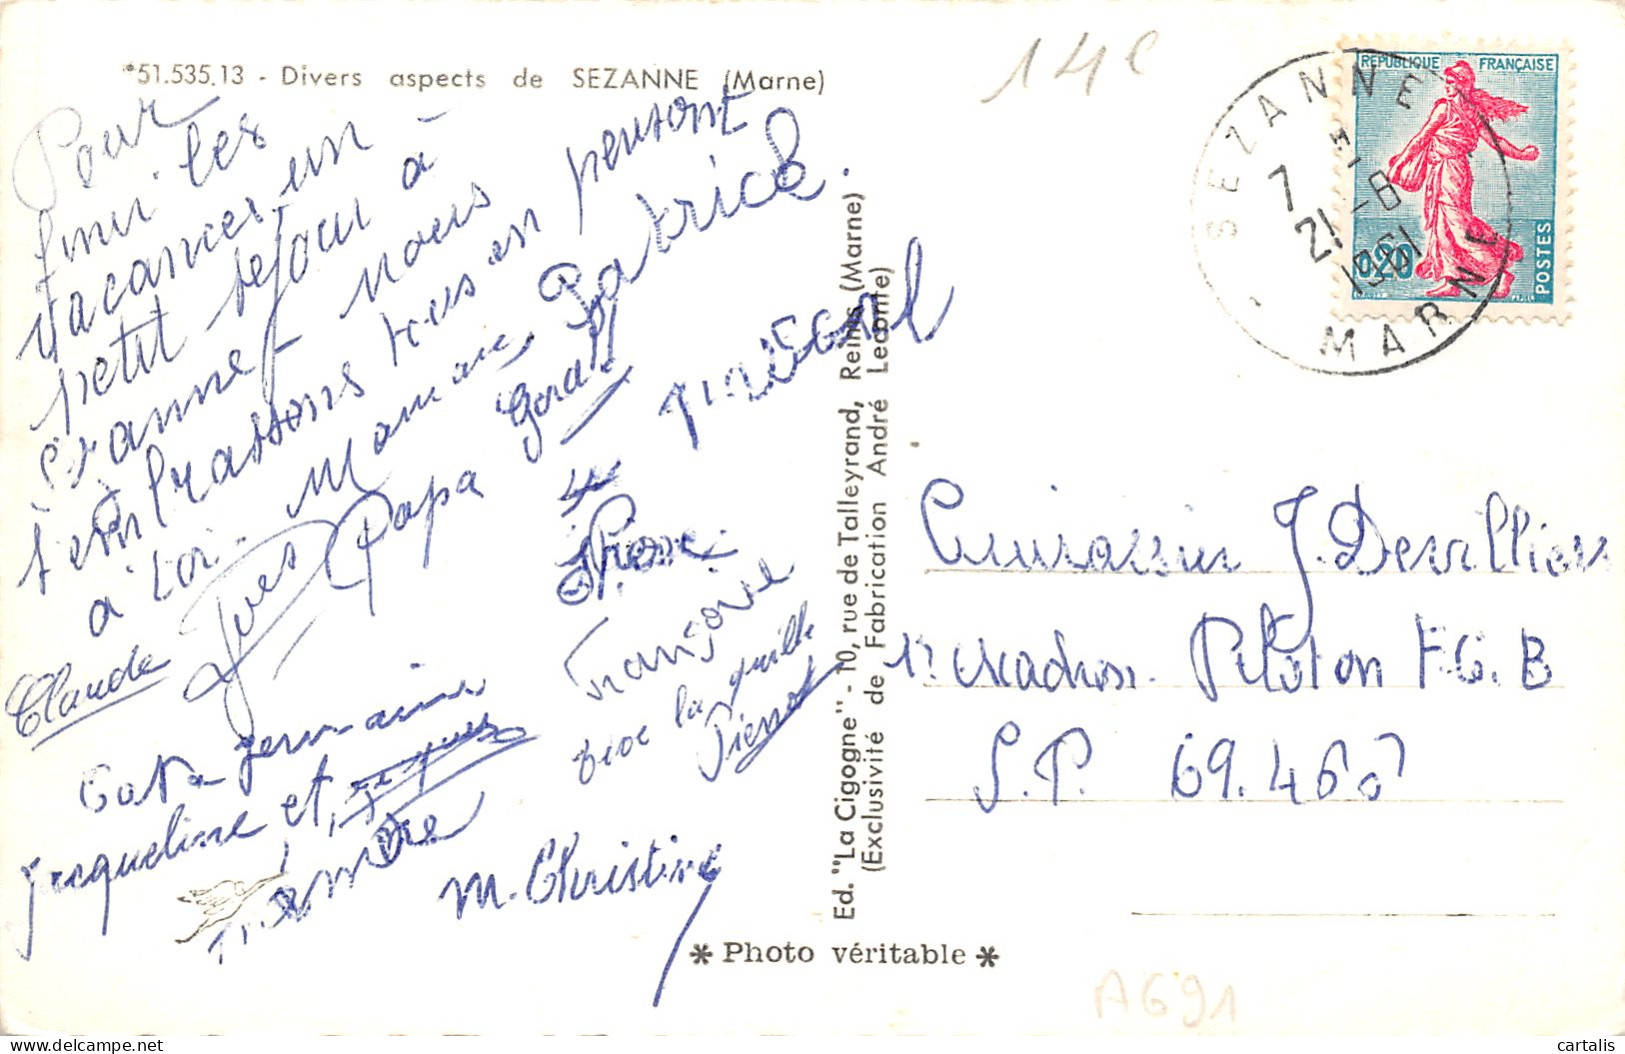 *51.535.13 - Divers aspects de SEZANNE (Marne)
14e
Pour
finir les
vacances un
petit séjour à
Sézanne - nous
t'embrassons tous en pensant
à toi. Maman, Patrick.
Papa Gérard
Yves
Claude
Pierre
Françoise
vive la quille
Pierrot
Germaine
Jacqueline et Jacques
M. Christine
RÉPUBLIQUE FRANÇAISE
0,20
POSTES
SEZANNE
7
21-8
1961
MARNE
Ed. "La Cigogne" - 10, rue de Talleyrand, Reims (Marne)
(Exclusivité de Fabrication André Leconte)
Cuirassier J. Devilliers
1er escadron Peloton F.G.B
S.P. 69.460
* Photo véritable *
A691
cartalis
www.delcampe.net